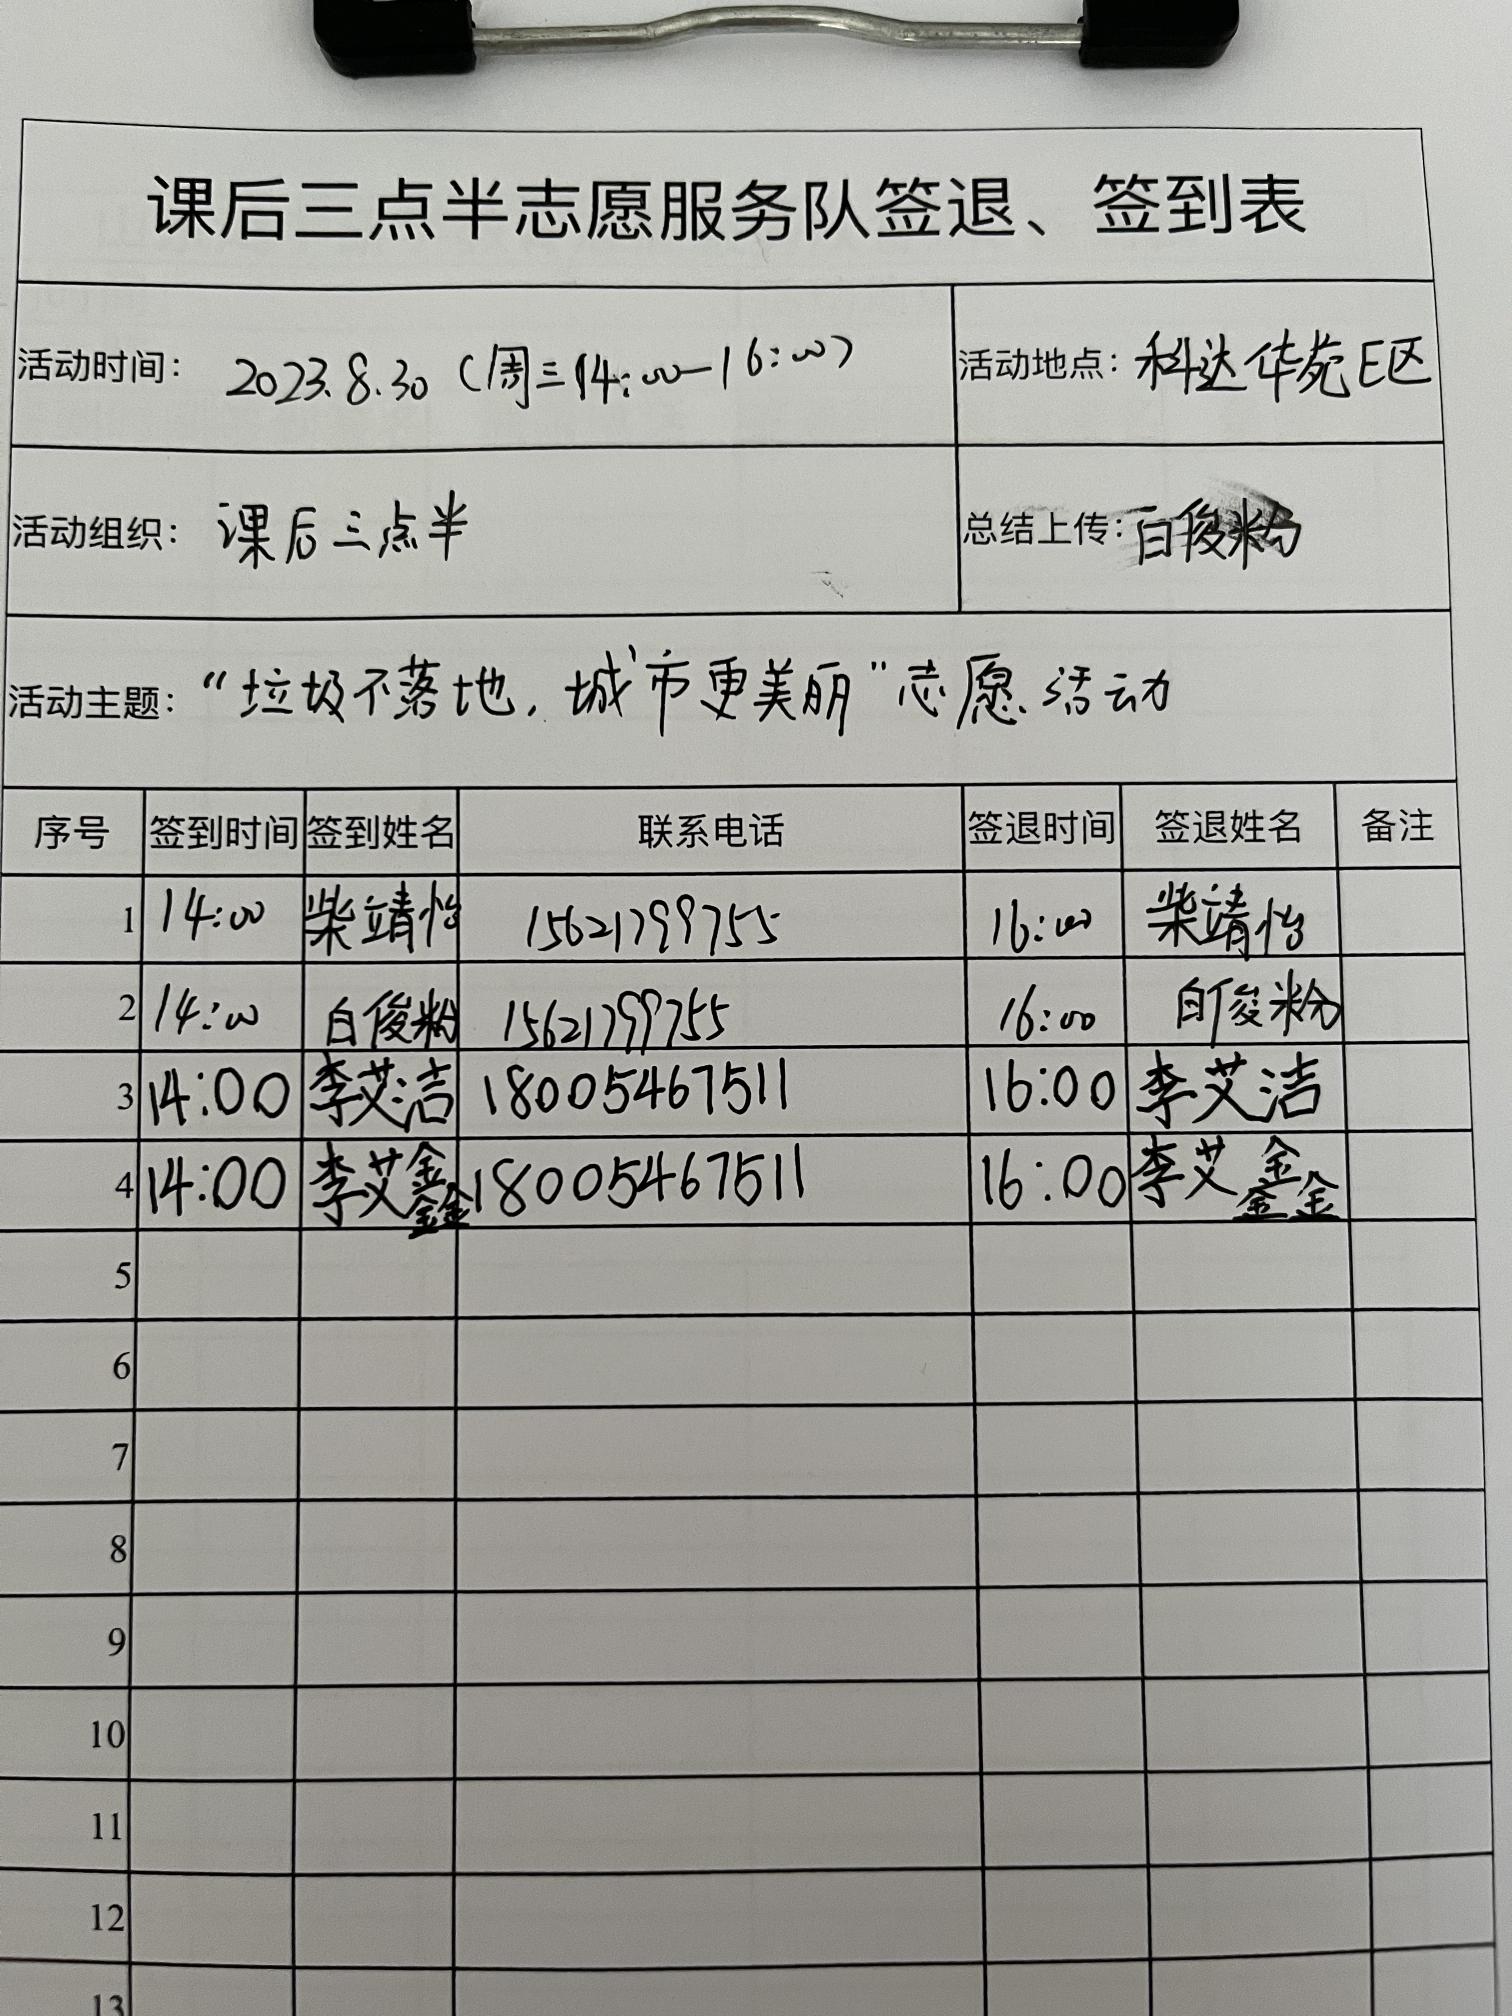 课后三点半志愿服务队签退、签到表
活动时间： 2023.8.30（周三14:00—16:00） 活动地点：科达华苑E区
活动组织： 课后三点半 总结上传：白俊粉
活动主题：“垃圾不落地，城市更美丽”志愿活动
序号 签到时间 签到姓名 联系电话 签退时间 签退姓名 备注
1 14:00 柴靖怡 15621799755 16:00 柴靖怡
2 14:00 白俊粉 15621799755 16:00 白俊粉
3 14:00 李艾洁 18005467511 16:00 李艾洁
4 14:00 李艾鑫 18005467511 16:00 李艾鑫
5
6
7
8
9
10
11
12
13